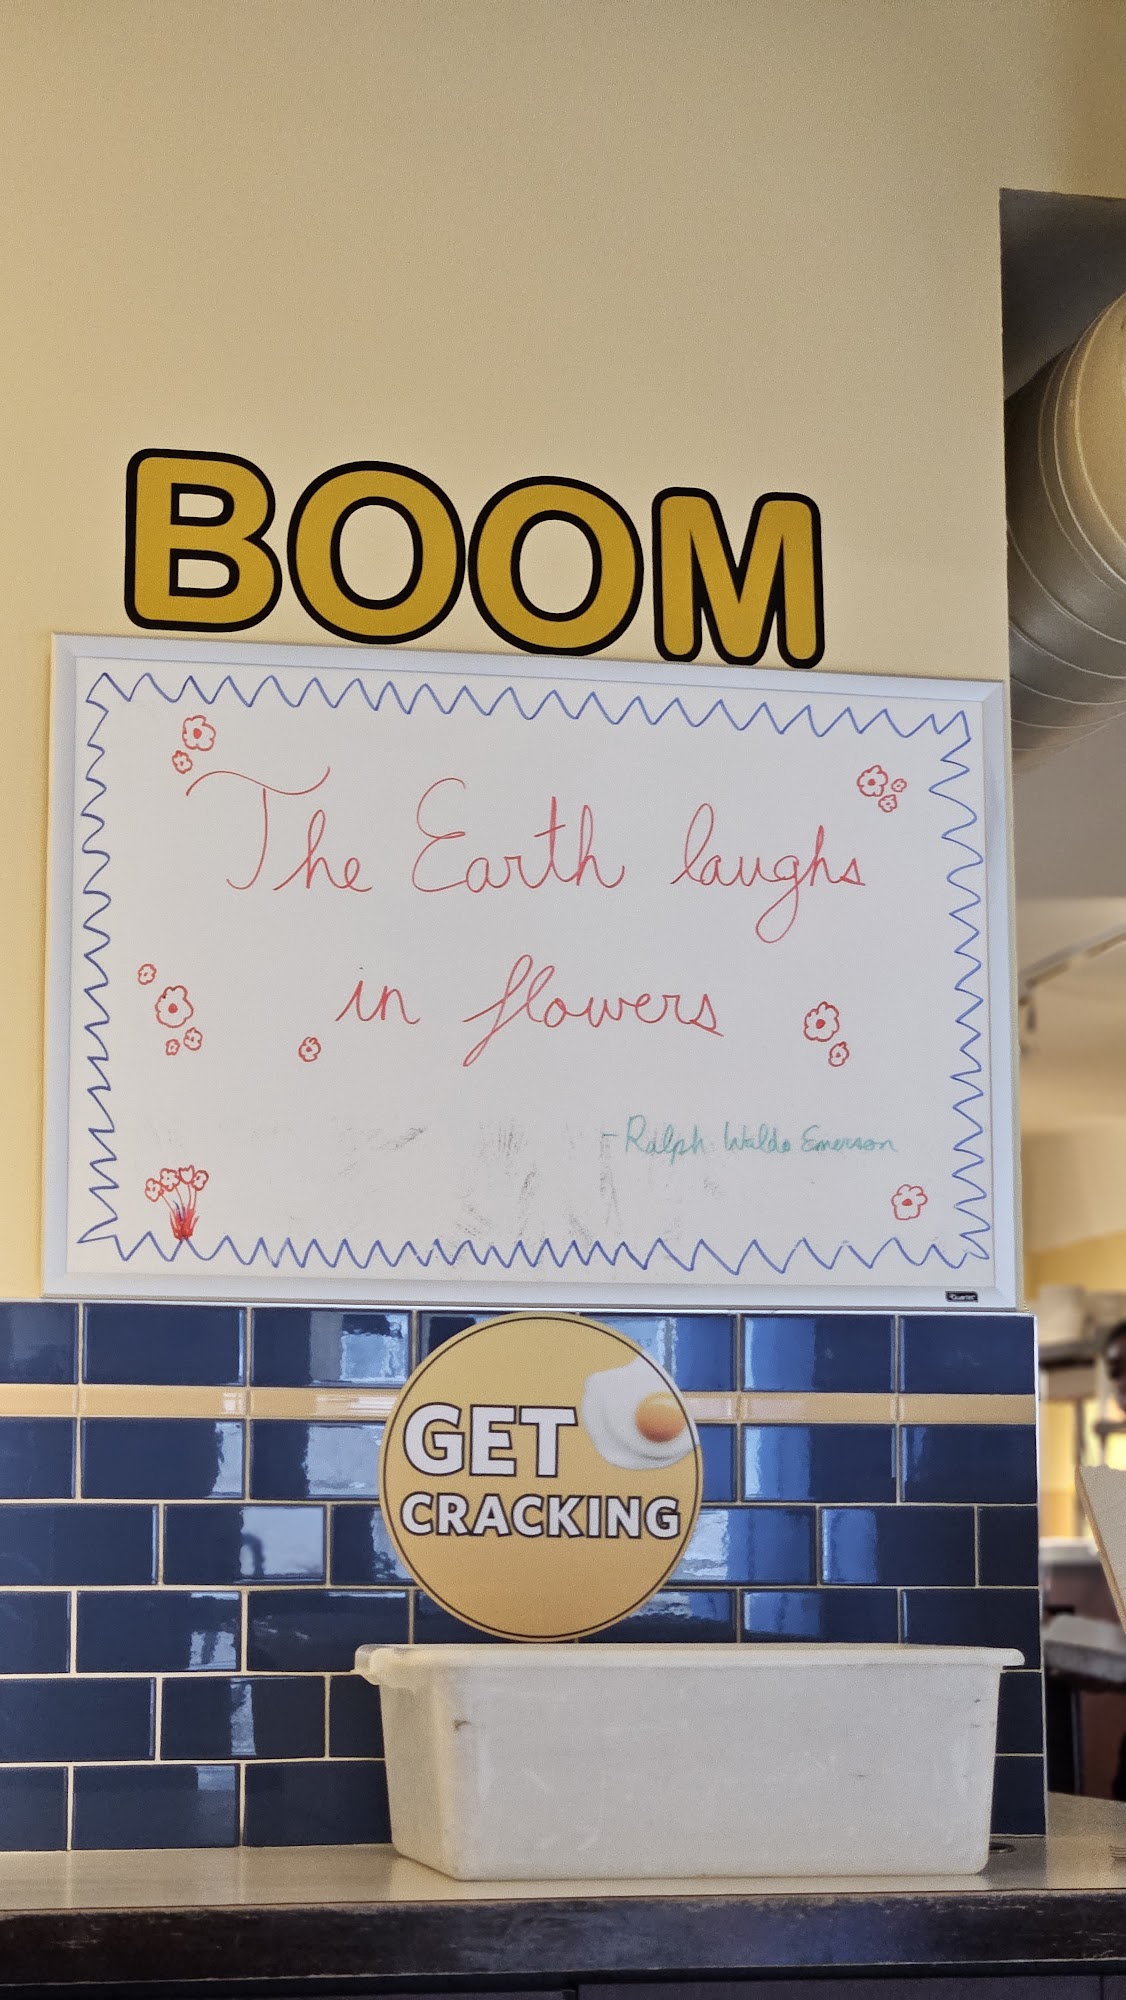 BOOM
The Earth laughs
in flowers
- Ralph Waldo Emerson
GET
CRACKING